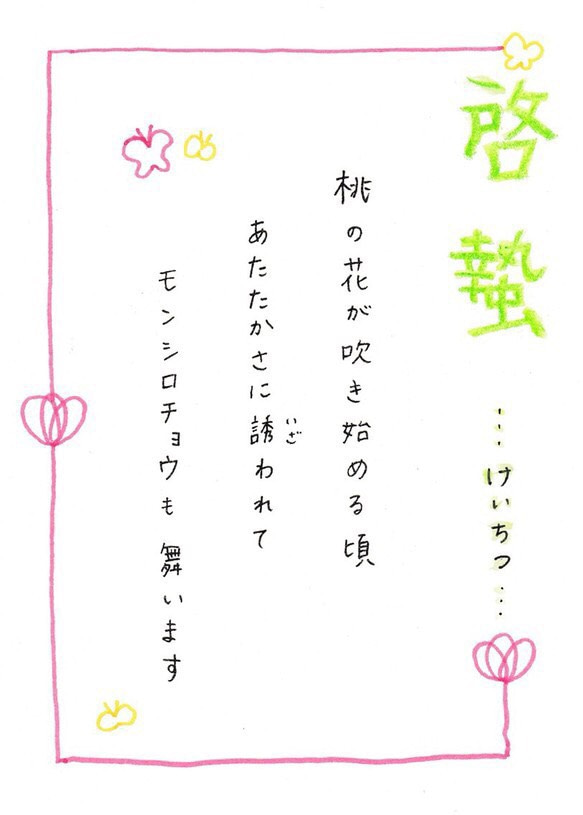 啓蟄
…けいちつ…
桃の花が吹き始める頃
あたたかさに誘われて
いざ
モンシロチョウも 舞います